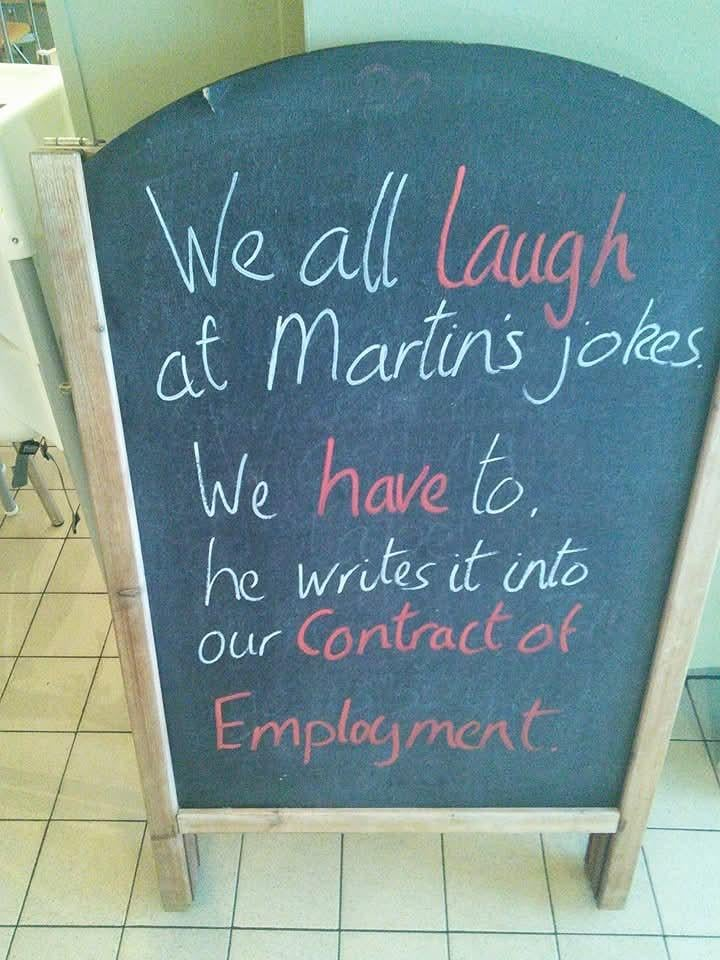 We all laugh
at Martin's jokes.
We have to,
he writes it into
our Contract of
Employment.